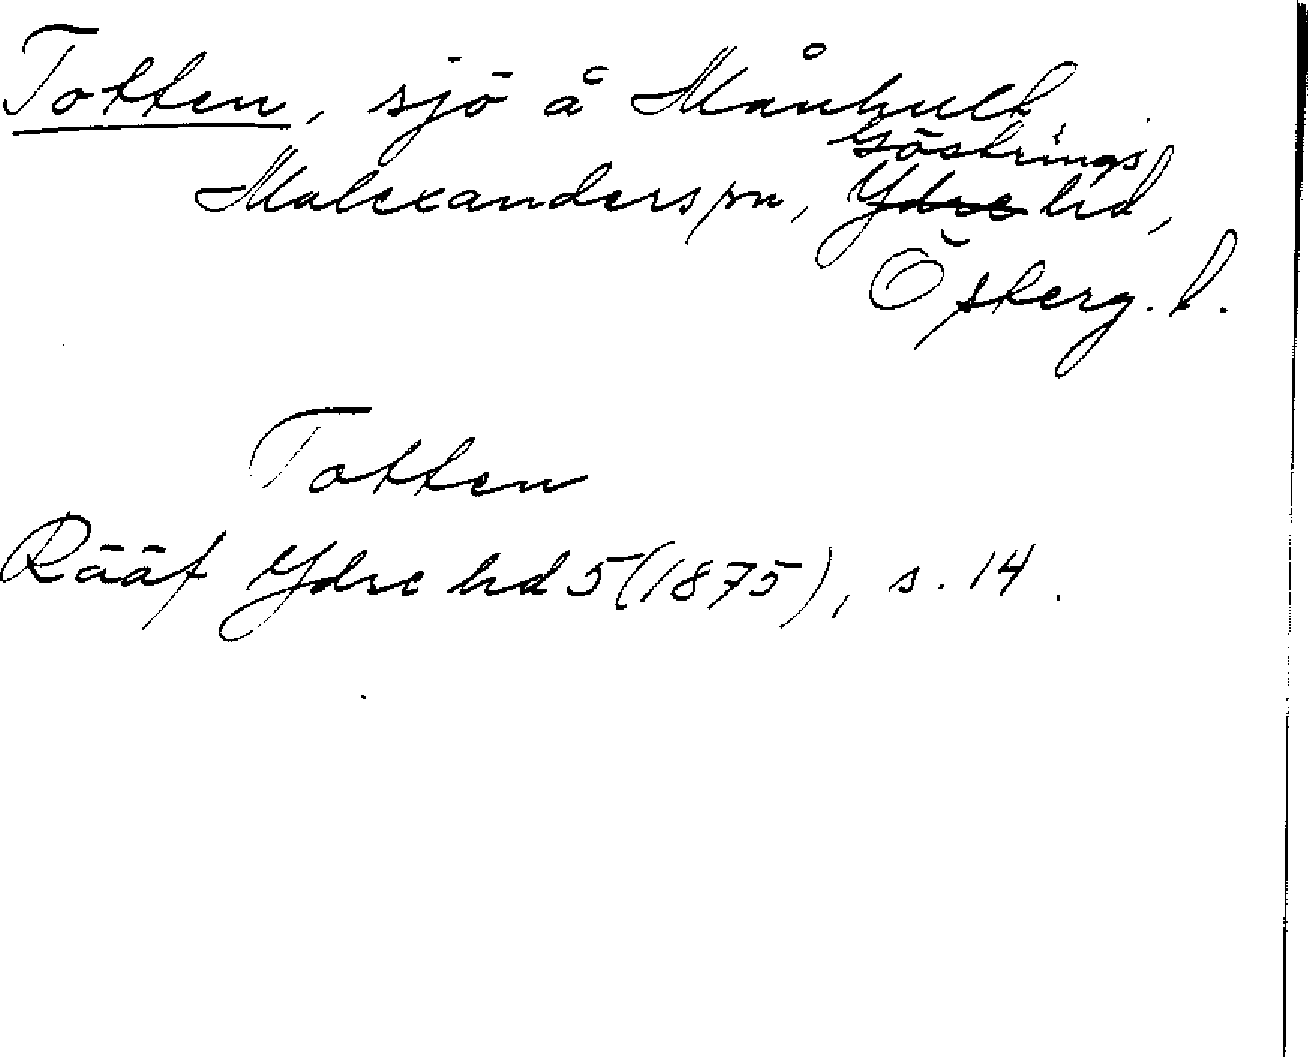 Totten, sjö å Månhult,
Malexanders sn, Göstrings hd,
Österg. l.
Totten
Rääf Ydre hd 5 (1875), s. 14.